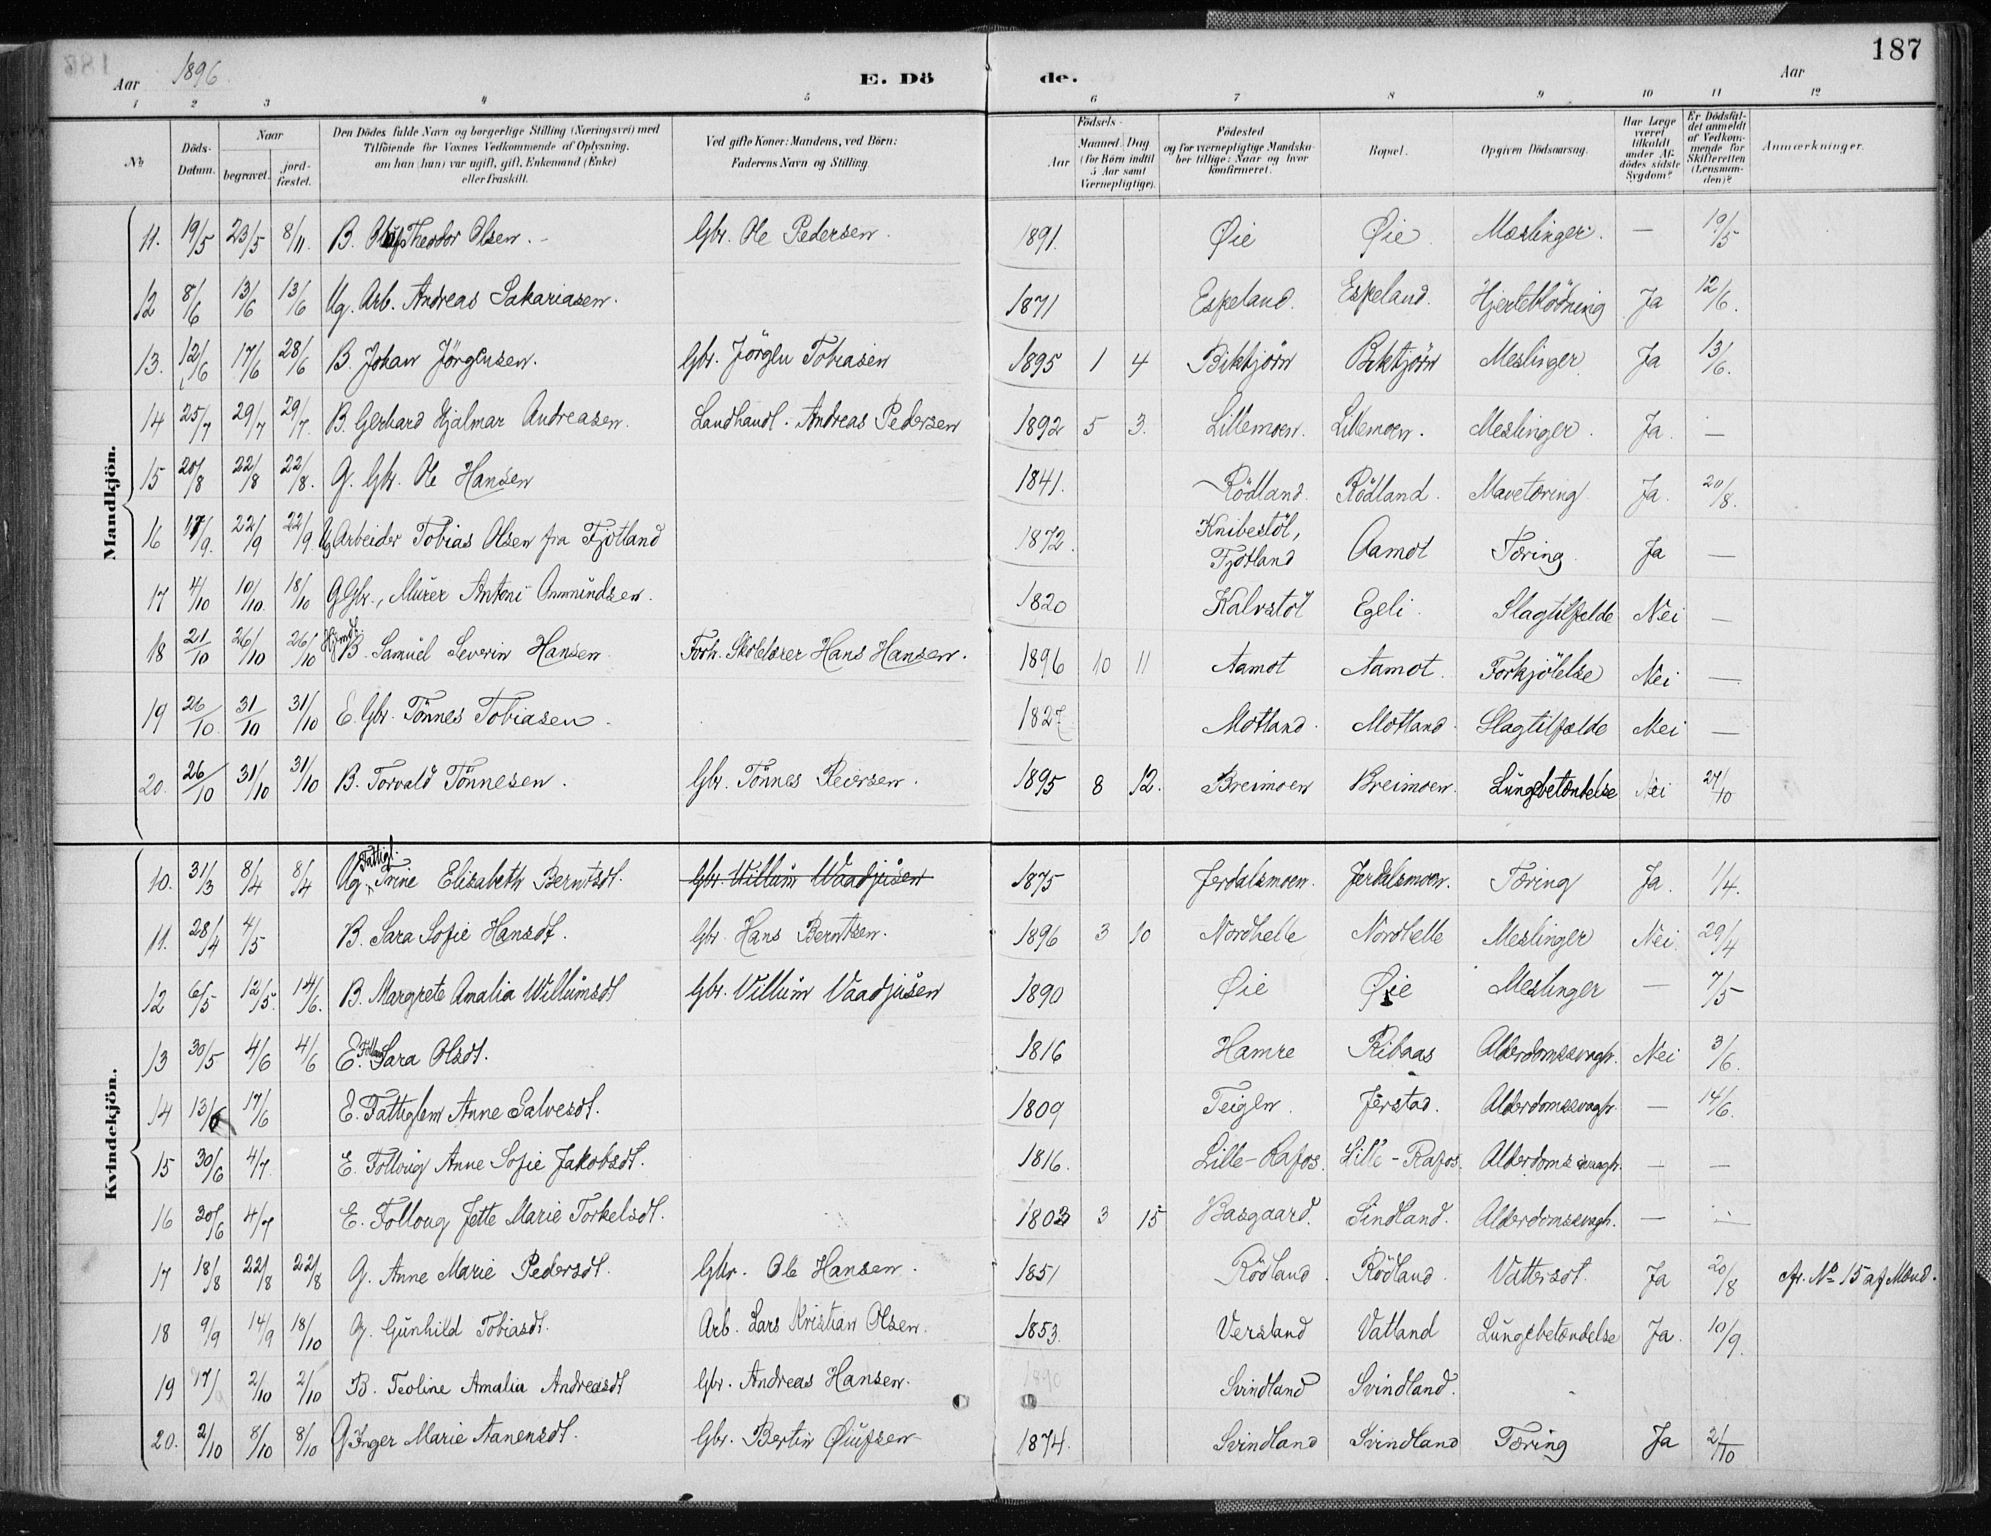 187
Aar 1896 E. Dö de. Aar
1 2 3 4 5 6 7 8 9 10 11 12
No Döds-Datum. Naar begravet. jord-fæstet. Den Dödes fulde Navn og borgerlige Stilling (Næringsvei) med Tilföiende for Voxnes Vedkommende af Oplysning, om han (hun) var ugift, gift, Enkemand (Enke) eller fraskilt. Ved gifte Koner: Mandens, ved Börn: Faderens Navn og Stilling. Födsels- Aar Maaned Dag (for Börn indtil 5 Aar samt Værnepligtige). Födested og for værnepligtige Mandskaber tillige: Naar og hvor konfirmeret. Bopæl. Opgiven Dödsaarsag. Har Læge været tilkaldt under Afdödes sidste Sygdom? Er Dödsfaldet anmeldt af Vedkommende for Skifteretten (Lensmanden)? Anmærkninger.
Mandkjön.
11. 19/5 23/5 8/11 B. Oluf Theodor Olsen. Gbr. Ole Pedersen. 1891. Øie Øie Mæslinger. — 19/5
12 8/6 13/6 13/6 Ug. Arb. Andreas Sakariasen. 1871 Espeland. Espeland. Hjerteblödning Ja 12/6.
13. 12/6 17/6 28/6 B. Johan Jörgensen. Gbr. Jörgen Tobiasen 1895 1 4 Birktjörn Birktjörn Meslinger Ja 13/6.
14 25/7 29/7 29/7. B. Gerhard Hjalmar Andreasen. Landhandl. Andreas Pedersen 1892 5 3. Lillemoen. Lillemoen. Meslinger. Ja. —
15 20/8 22/8 22/8. G. Gbr. Ole Hansen 1841. Rödland. Rödland. Mavetæring. Ja. 20/8.
16 17/9. 22/9 22/9. Ug Arbeider Tobias Olsen fra Fjotland 1872. Knibestöl, Fjotland Aamot Tæring. Ja —
17 4/10 10/10. 18/10 G Gbr., Murer Antoni Ommundsen. 1820 Kalvstöl Egeli. Slagtilfelde Nei —
18 21/10 26/10 26/10 Hjemdt. B. Samuel Severin Hansen Forh. Skolelærer Hans Hansen. 1896 10 11 Aamot Aamot. Forkjölelse Nei —
19 26/10 31/10 31/10 E. Gbr. Tönnes Tobiasen. 1827 Motland. Motland. Slagtilfælde Nei —
20. 26/10 31/10 31/10 B. Torvald Tönnesen. Gbr. Tönnes Reiersen. 1895 8 12. Breimoen Breimoen. Lungebetændelse Nei 27/10
Kvindekjön.
10. 31/3 8/4 8/4 Ug. Fattigl. Trine Elisabeth Berntsdt. Gbr. Willum Waadjusen 1875 Jerdalsmoen. Jerdalsmoen. Tæring Ja. 1/4.
11. 28/4 4/5 B. Sara Sofie Hansdt. Gbr. Hans Berntsen. 1896 3 10 Nordhelle Nordhelle Meslinger Nei. 29/4
12 6/5 12/5. 14/6. B. Margrete Amalia Willumsdt Gbr. Villum Vaadjusen 1890 Øie Øie Meslinger — 7/5
13 30/5 4/6 4/6 E. Sara Olsdt. 1816 Hamre Ribaas Alderdomssvagh. Nei 3/6.
14 13/6 17/6 E. Fattiglem Anne Salvesdt. 1809 Teigen. Jerstad. Alderdomssvagh. — 14/6.
15 30/6 4/7. E. Folloug Anne Sofie Jakobsdt. 1816. Lille-Rafos. Lille-Rafos. Alderdomssvagh. — —
16 30/6 4/7 E. Folloug Jette Marie Torkelsdt. 1803 3 15 Basgaard. Sindland. Alderdomssvagh. — —
17 18/8 22/8 22/8 G. Anne Marie Pedersdt. Gbr. Ole Hansen. 1851 Rödland. Rödland. Vattersot. Ja 20/8 cfr. No 15 af Mænd.
18 9/9 14/9 18/10 G. Gunhild Tobiasdt. Arb. Lars Kristian Olsen. 1853. Versland Vatland Lungebetændelse Ja. 10/9.
19 17/ 2/10 2/10 B. Teoline Amalia Andreasdt Gbr. Andreas Hansen. 1890 Svindland Svindland.
20. 2/10 8/10 8/10 G Inger Marie Aanensdt. Gbr. Bertin Øiufsen 1874. Svindland Svindland Tæring Ja 2/10